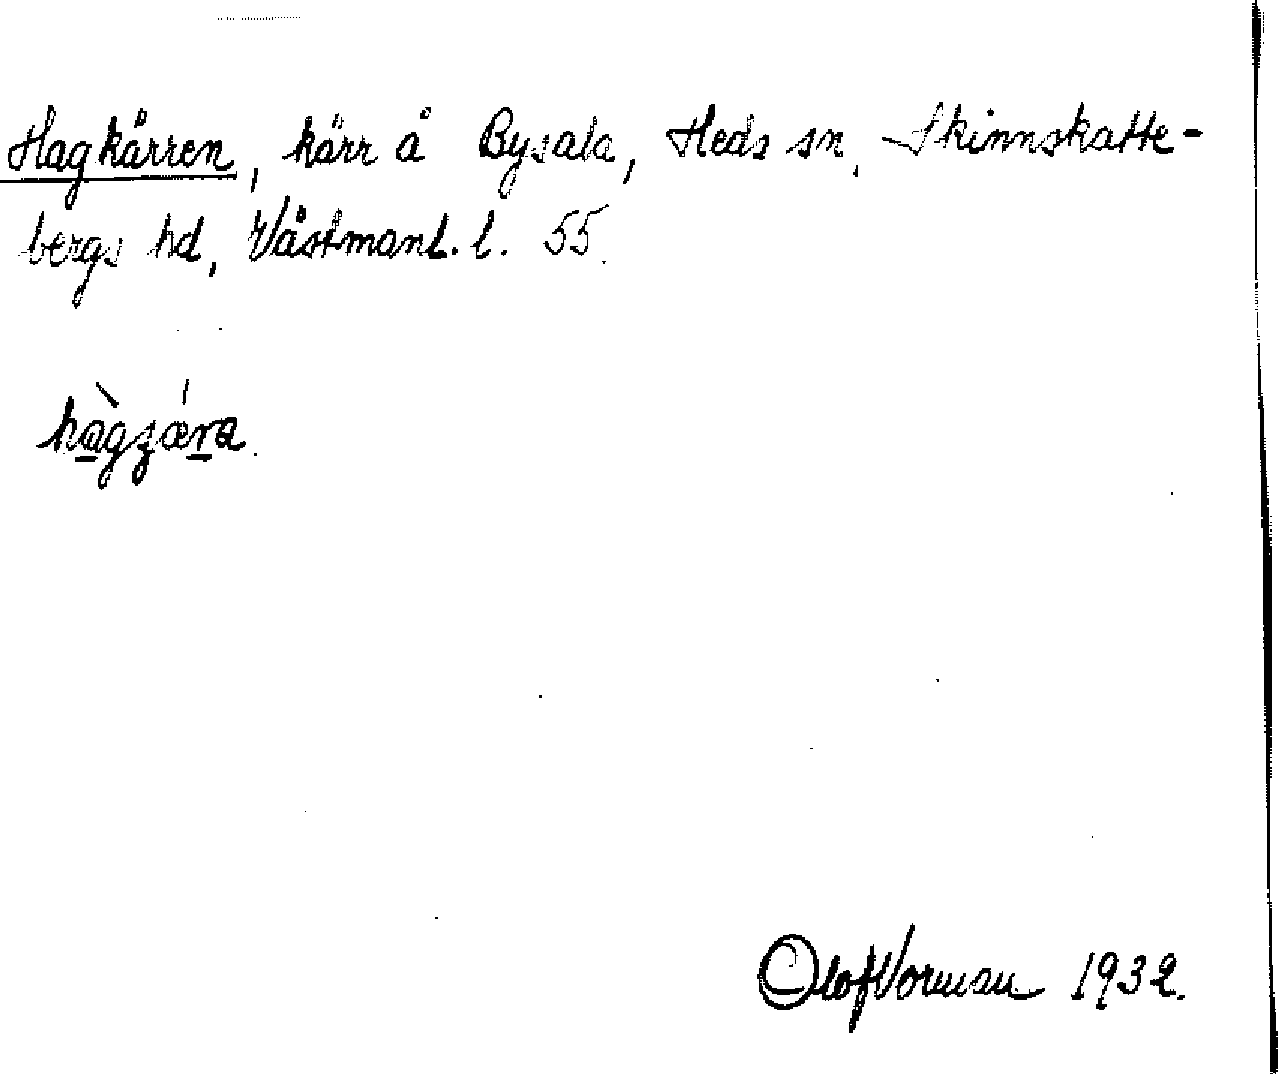 Hagkärren, kärr å Bysala, Heds sn, Skinnskatte-
bergs hd, Västmanl. l. 55.
hàgzǽra.
Olof Vorman 1932.